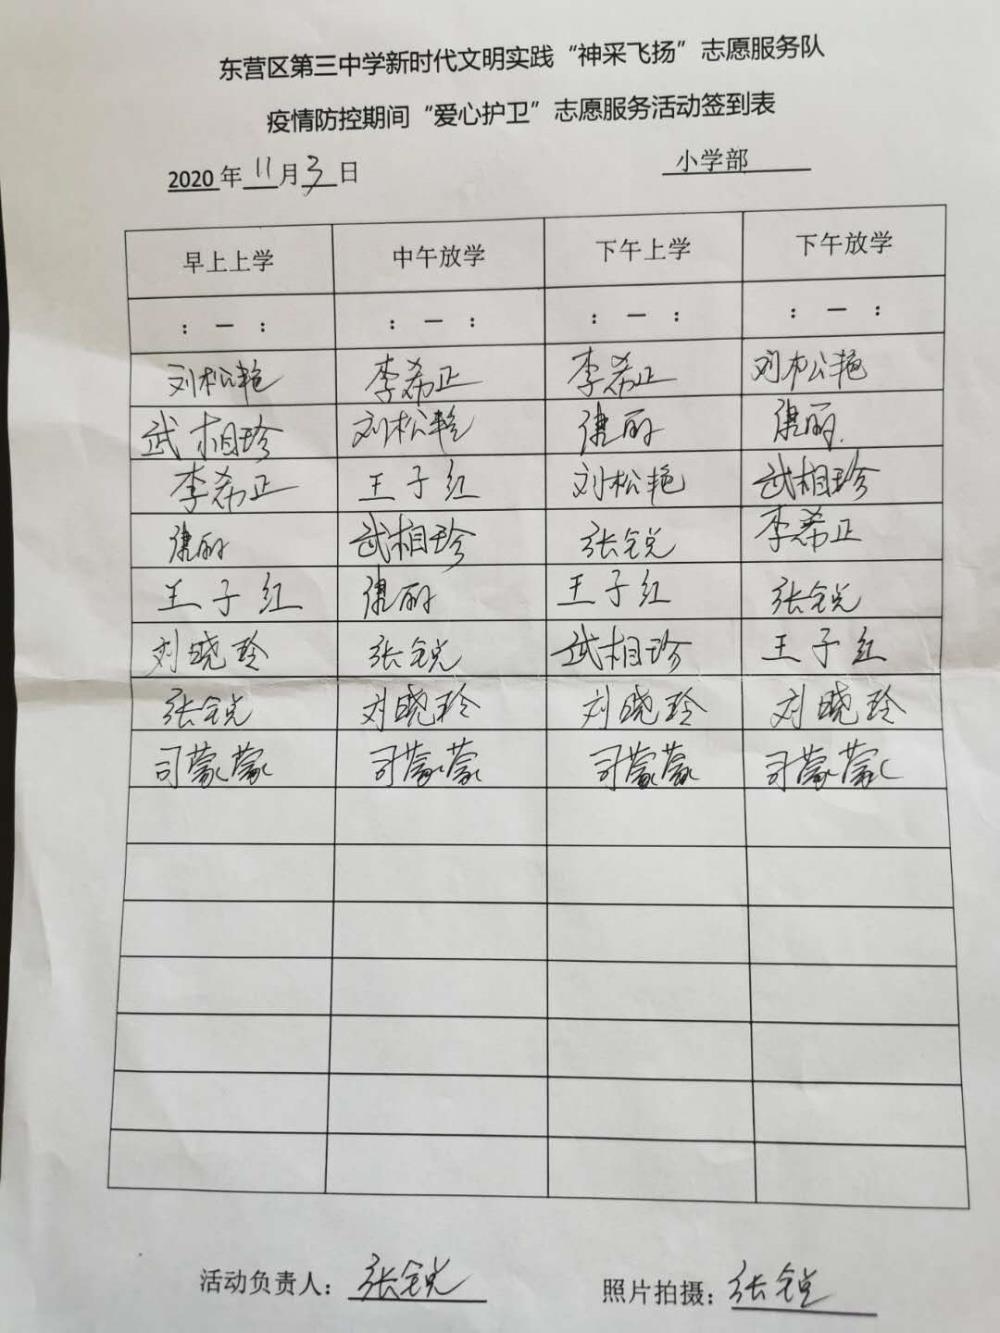 东营区第三中学新时代文明实践“神采飞扬”志愿服务队
疫情防控期间“爱心护卫”志愿服务活动签到表
2020年11月3日 小学部
早上上学 中午放学 下午上学 下午放学
：— ： ：— ： ：— ： ：— ：
刘松艳 李希正 李希正 刘松艳
武相珍 刘松艳
李希正 王子红 刘松艳 武相珍
武相珍 张锐 李希正
王子红 王子红 张锐
刘晓玲 张锐 武相珍 王子红
张锐 刘晓玲 刘晓玲 刘晓玲
司蒙蒙 司蒙蒙 司蒙蒙 司蒙蒙
活动负责人：张锐 照片拍摄：张锐